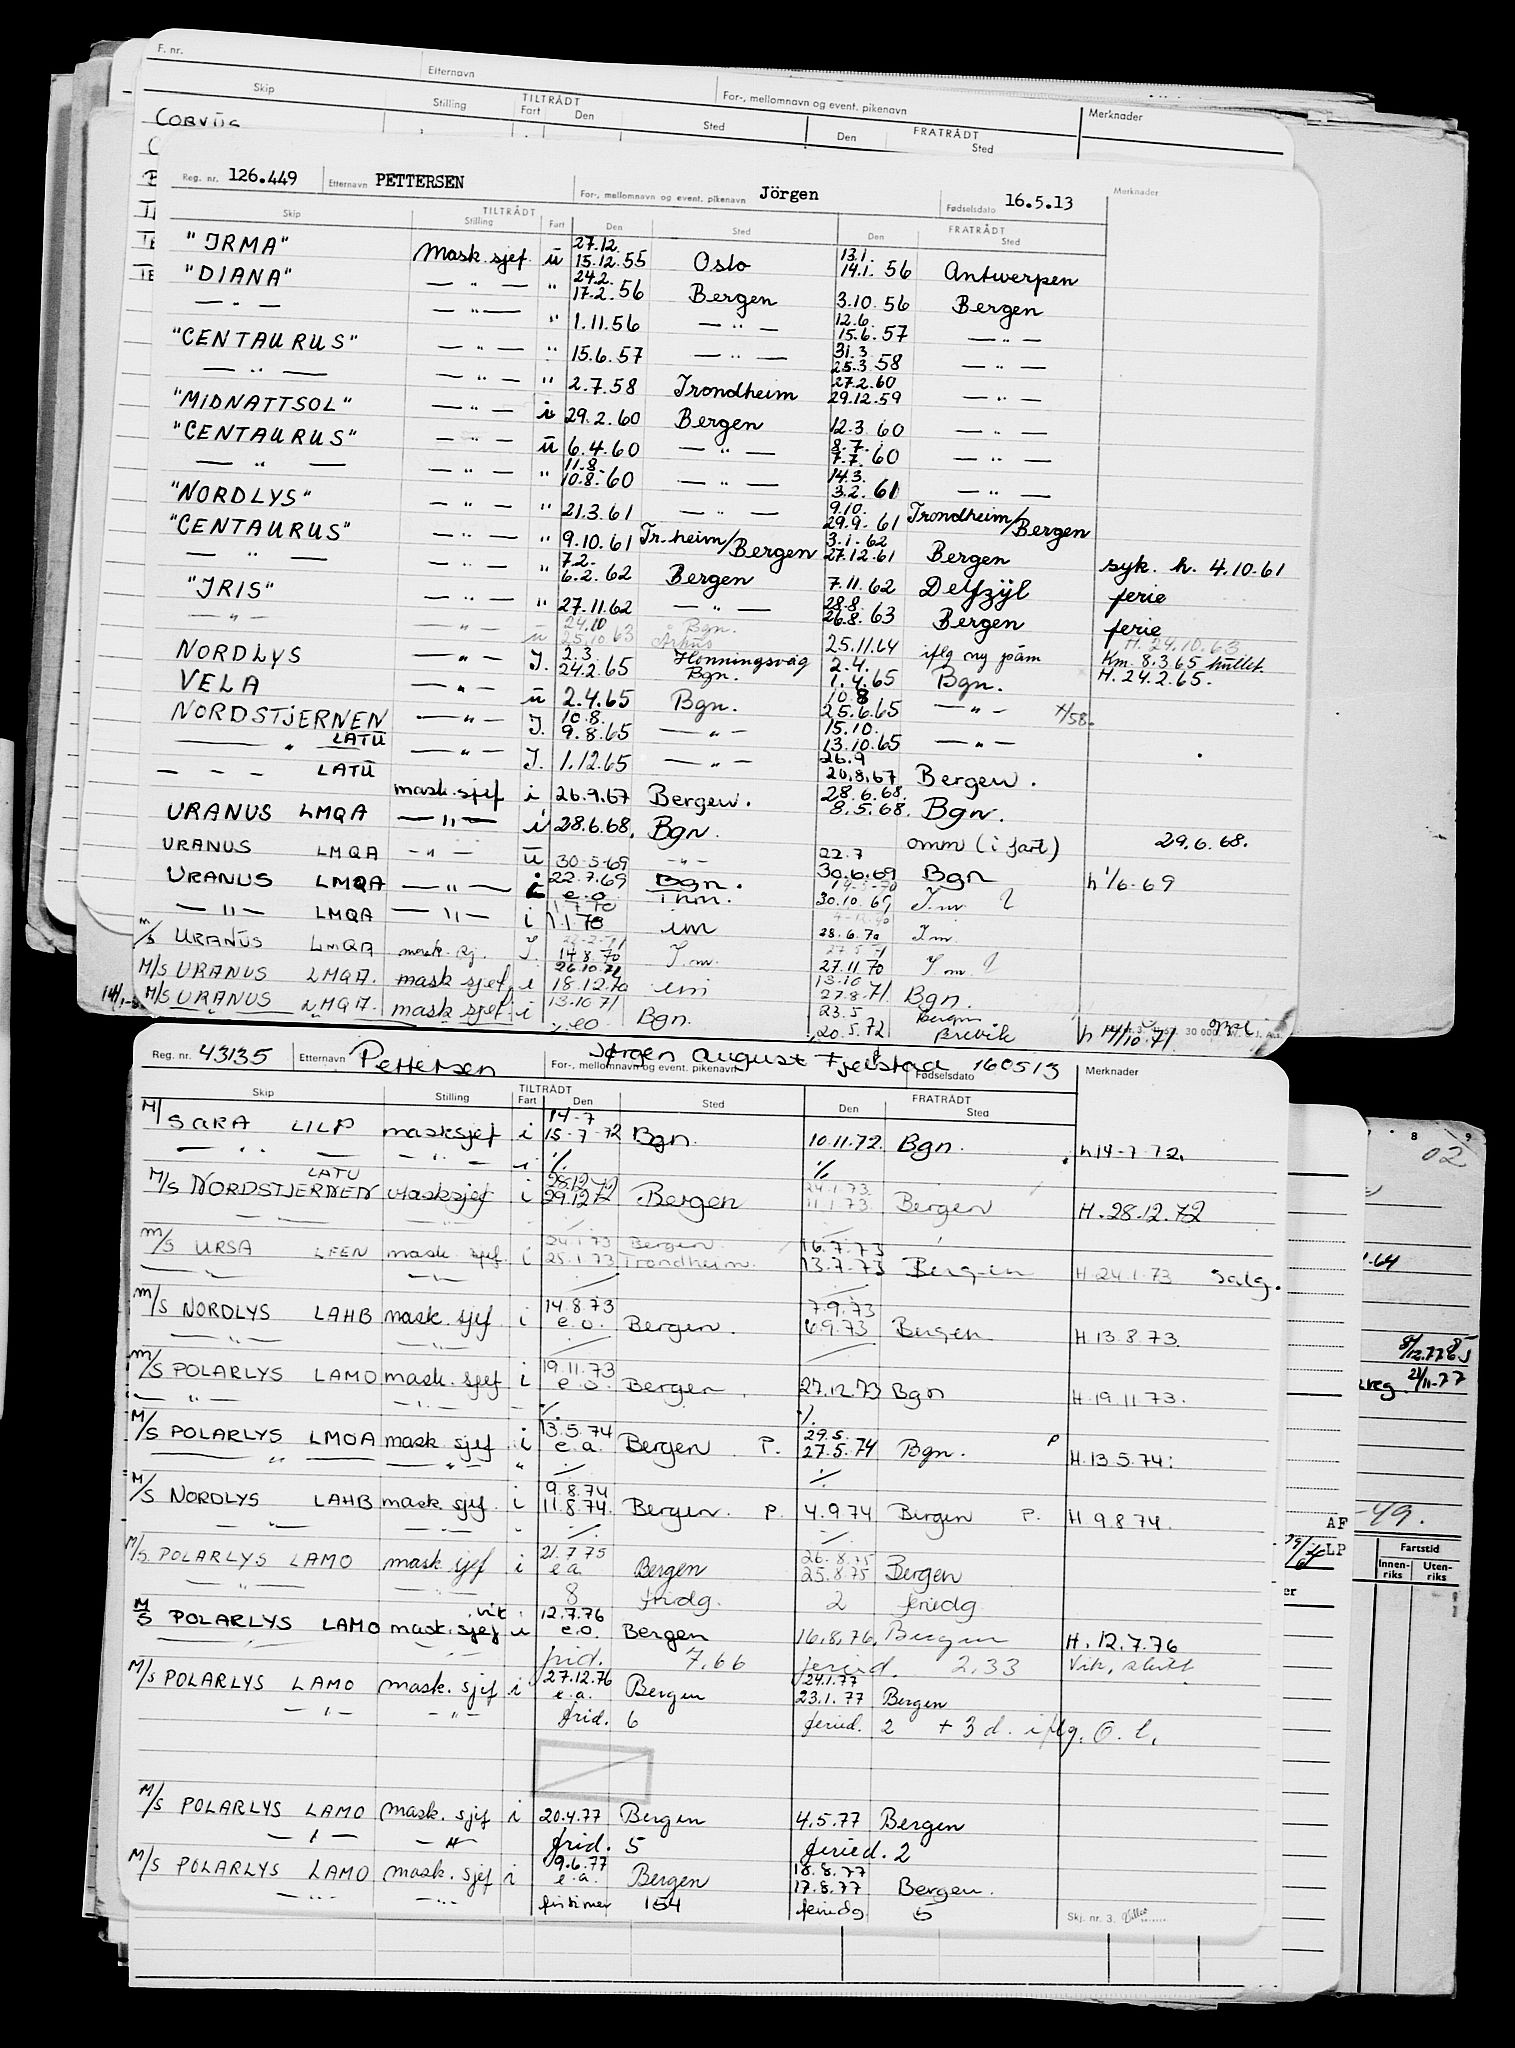 F. nr.
Etternavn
For-, mellomnavn og event. pikenavn
Merknader
Skip Stilling TILTRÅDT Fart Den Sted Den FRATRÅDT Sted
Reg. nr. 126.449 Etternavn PETTERSEN For-, mellomnavn og event. pikenavn Jörgen Fødselsdato 16.5.13 Merknader
Skip TILTRÅDT Stilling Fart Den Sted Den FRATRÅDT Sted
27.12. 13.1.
"IRMA" Mask.sjef u 15.12.55 Oslo 14.1.56 Antwerpen
24.2.
"DIANA" — " — " 17.2.56 Bergen 3.10.56 Bergen
12.6.
— " — — " — " 1.11.56 — " — 15.6.57 — " —
31.3
"CENTAURUS" — " — " 15.6.57 — " — 25.3.58 — " —
27.2.60
— " — — " — " 2.7.58 Trondheim 29.12.59 — " —
"MIDNATTSOL" — " — i 29.2.60 Bergen 12.3.60 — " —
8.7.
"CENTAURUS" — " — u 6.4.60 — " — 7.7.60 — " —
11.8. 14.3.
— " — — " — " 10.8.60 — " — 3.2.61 — " —
9.10.
"NORDLYS" — " — " 21.3.61 — " — 29.9.61 Trondheim/Bergen
3.1.62
"CENTAURUS" — " — " 9.10.61 Tr.heim/Bergen 27.12.61 Bergen syk. h. 4.10.61
7.2.
— " — — " — " 6.2.62 Bergen 7.11.62 Delfzijl ferie
28.8.
"IRIS" — " — " 27.11.62 — " — 26.8.63 Bergen ferie
24.10 Bgn. H. 24.10.63
— " — — " — u 25.10.63 Århus 25.11.64 iflg ny påm
2.3. Honningsvåg 2.4. Km. 8.3.65
NORDLYS — " — I. 24.2.65 Bgn. 1.4.65 Bgn. H. 24.2.65.
10.8
VELA — " — u 2.4.65 Bgn. 25.6.65 — " —
10.8. 15.10.
NORDSTJERNEN LATU — " — I. 9.8.65 — " — 13.10.65 — " —
26.9
— " — LATU — " — I. 1.12.65 — " — 20.8.67 Bergen.
28.6.68.
— — — LATU mask.sjef i 26.9.67 Bergen. 8.5.68. Bgn.
URANUS LMQA — " — i 28.6.68. Bgn. omm (i fart) 29.6.68.
22.7
URANUS LMQA — " — u 30-5-69 — " — 30.6.69 Bgn h 1/6.69
22.7.69 Bgn.
URANUS LMQA — " — i e.o. 30.10.69 I.m.
— " — LMQA — " — i 1.1.70 im 28.6.70 I.m.
M/S URANUS LMQA I. 14.8.70 I.m. 27.11.70 I m.
26.10.71 13.10
M/S URANUS LMQA. mask sjef. i 18.12.70 im 27.8.71 Bgn.
13.10.71 23.5 Bergen
M/S URANUS LMQA. mask sjef. i e.o Bgn. 20.5.72 Brevik h 14/10.71.
Reg. nr. 43135 Etternavn Pettersen For-, mellomnavn og event. pikenavn Jørgen August Fjelstad Fødselsdato 160513 Merknader
Skip Stilling TILTRÅDT Fart Den Sted Den FRATRÅDT Sted
14-7
M/S SARA LILP masksjef i 15-7-72 Bgn. 10.11.72. Bgn. h14-7.72.
28.12.72 24.1.73.
M/S NORDSTJERNEN LATU Masksjef i 29.12.72 Bergen 11.1.73. Bergen H. 28.12.72
24.1.73 Bergen 16.7.73
M/S URSA LFEN mask. sjef. i 25.1.73 Trondheim. 13.7.73 Bergen H. 24.1.73 Salg.
14.8.73 7.9.73
M/S NORDLYS LAHB mask. sjef. i e.o. Bergen. 6.9.73 Bergen. H 13.8.73.
19.11.73
M/S POLARLYS LAMO mask. sjef i e.o. Bergen. 27.12.73 Bgn H. 19.11.73.
13.5.74 29.5.
M/S POLARLYS LMOA mask sjef. i e.a. Bergen P. 27.5.74 Bgn. P H. 13.5.74.
9.8.74
M/S NORDLYS LAHB mask sjef. i 11.8.74. Bergen. P. 4.9.74 Bergen P. H 9.8.74.
21.7.75 26.8.75
M/S. POLARLYS LAMO mask. sjef i e a Bergen 25.8.75 Bergen
8 fridg. 2 feriedg
vik. 12.7.76
M/S POLARLYS LAMO mask. sjef i e.o. Bergen 16.8.76. Bergen H. 12.7.76
frid. 7.66 feried. 2.33 Vik. slutt
27.12.76 24.1.77
M/S POLARLYS LAMO mask. sjef i e.a. Bergen 23.1.77 Bergen
frid. 6 feried. 2 + 3 d. iflg. O. l.
M/S POLARLYS LAMO mask. sjef i 20.4.77 Bergen 4.5.77 Bergen
frid. 5 feried. 2
9.6.77 18.8.77
M/S POLARLYS LAMO mask. sjef i e.a. Bergen 17.8.77 Bergen.
fritimer 154 feriedg 5
Skj. nr. 3.
02
8 9
21/11-77
-49.
AF
LP
Fartstid
Innen-riks Uten-riks